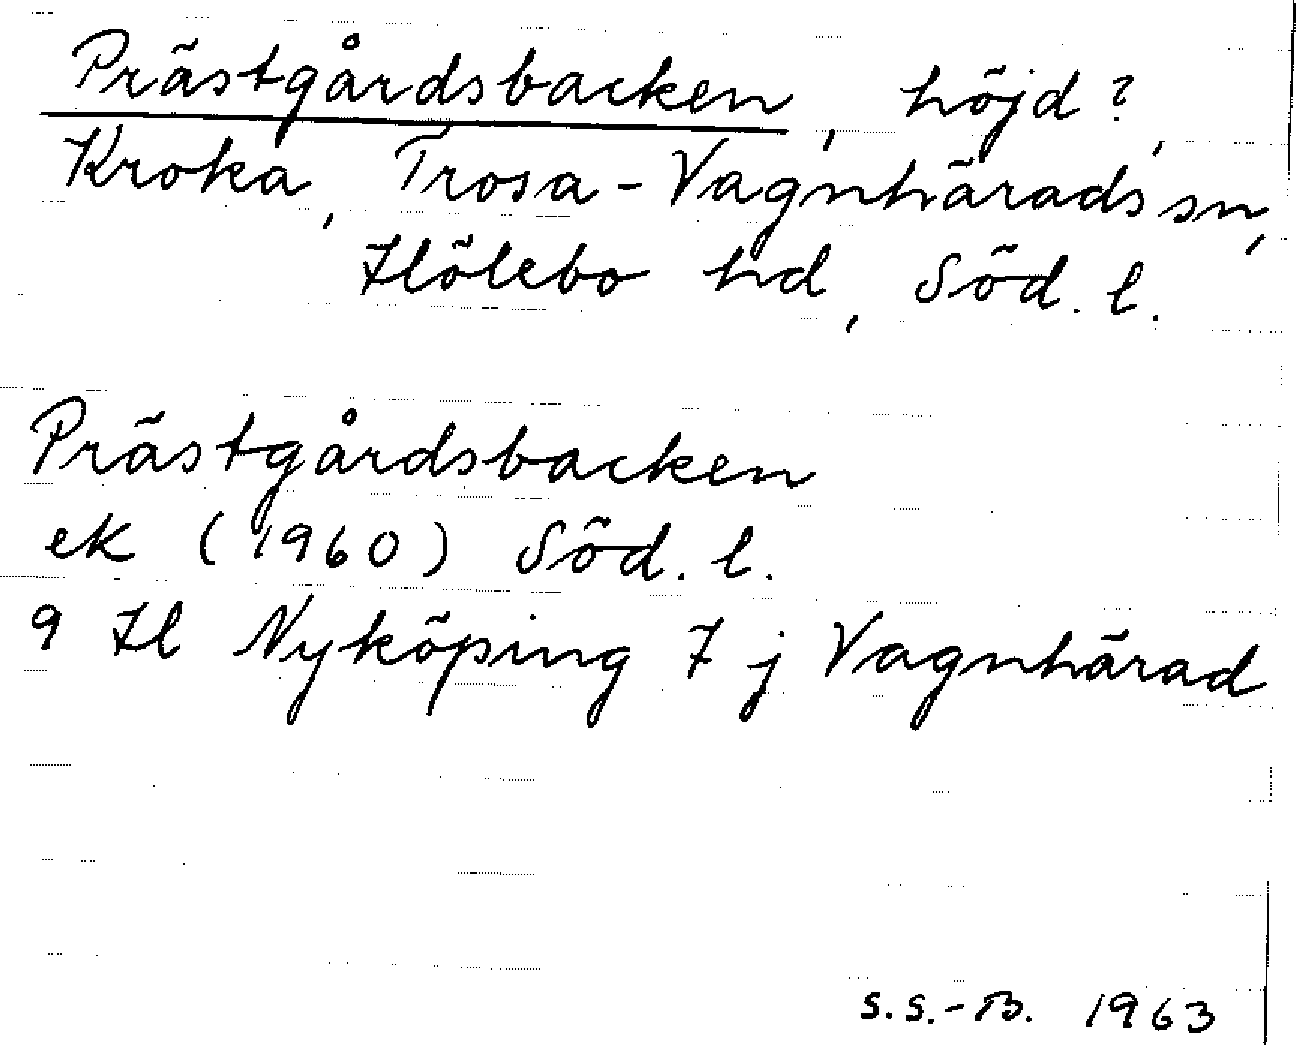 Prästgårdsbacken, höjd?,
Kroka, Trosa-Vagnhärads sn,
Hölebo hd, Söd. l.
Prästgårdsbacken
ek (1960) Söd. l.
9 Hl Nyköping 7 j Vagnhärad
S.S.-B. 1963